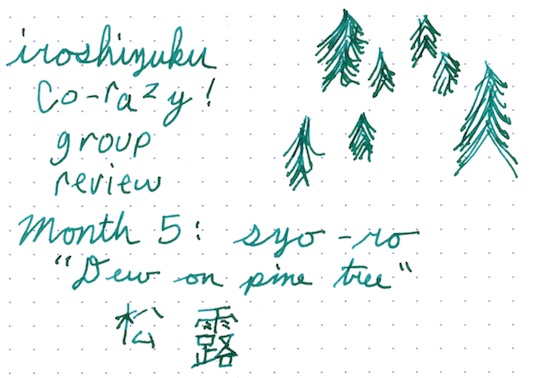 iroshizuku
Co-razy!
group
review
Month 5: syo-ro
"Dew on pine tree"
松露